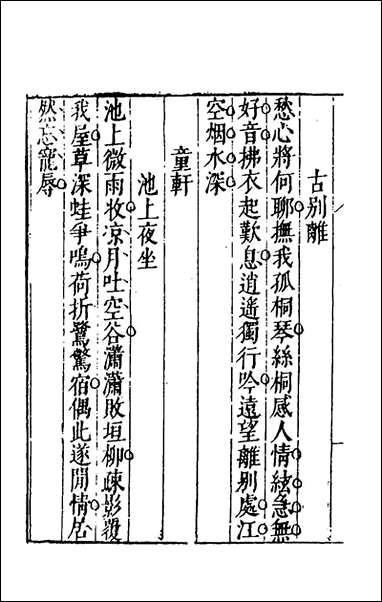 古别離
愁心將何聊撫我孤桐琴絲桐感人情絃急無
好音拂衣起歎息逍遥獨行吟遠望離别處江
空烟水深
童軒
池上夜坐
池上微雨收凉月吐空谷瀟瀟敗垣柳疎影覆
我屋草深蛙爭鳴荷折鷺驚宿偶此遂閒情
然忘寵辱